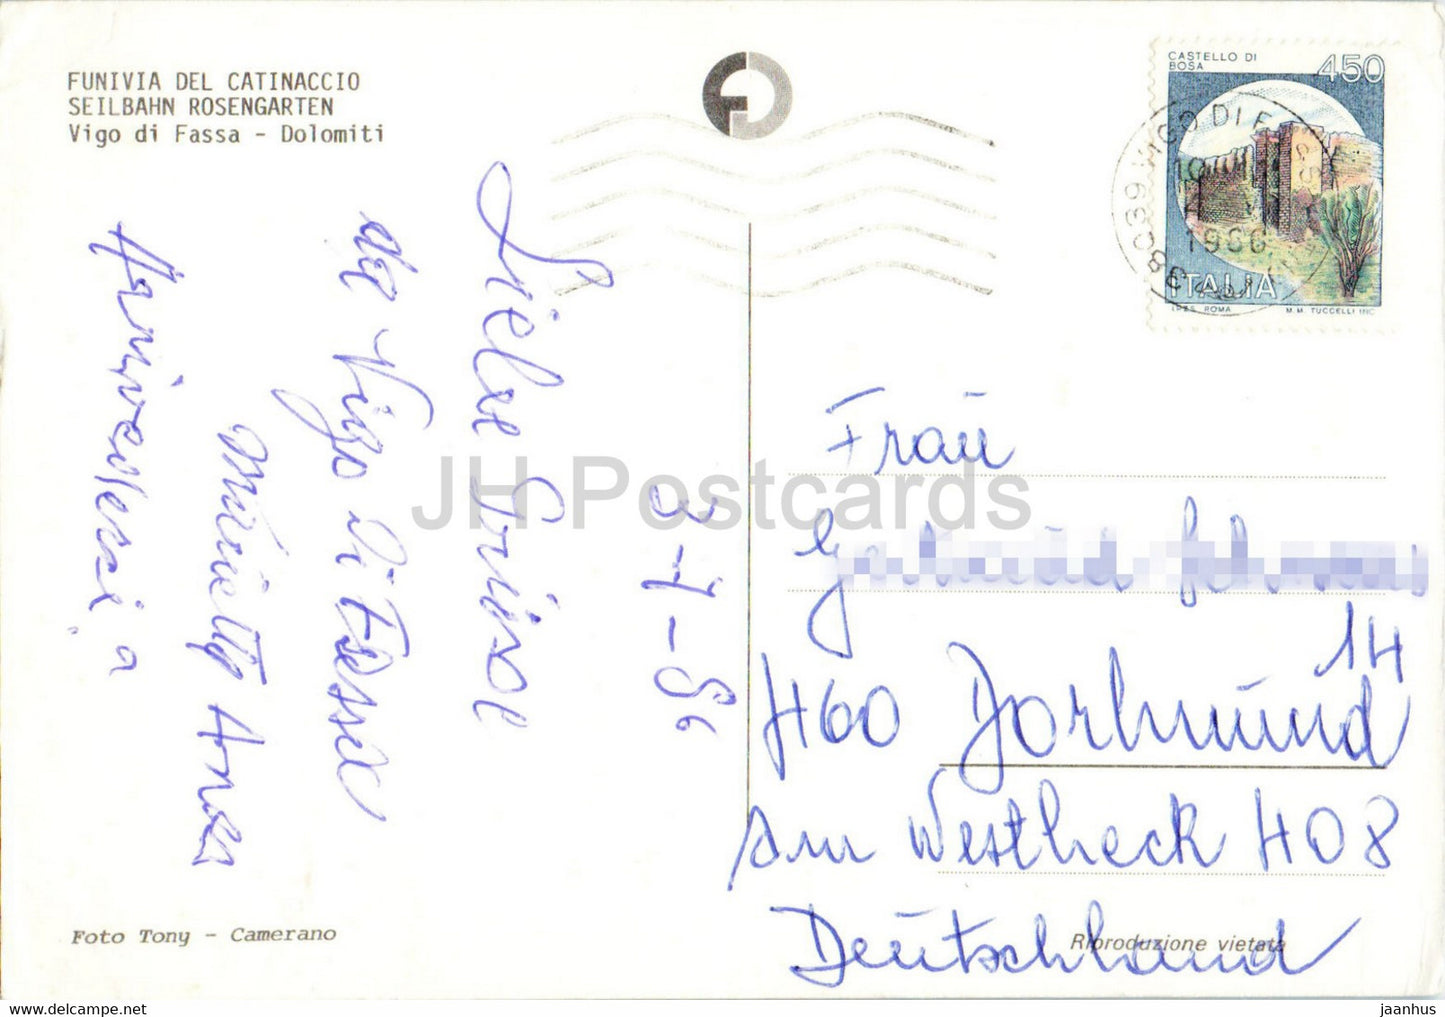 FUNIVIA DEL CATINACCIO
SEILBAHN ROSENGARTEN
Vigo di Fassa - Dolomiti
CASTELLO DI
BOSA
450
ITALIA
I.P.Z.S. ROMA
M.M. TUCCELLI INC.
38039 VIGO DI F
1986
3-7-86
Liebe Grüsse
da Vigo di Fassa
Anna
a
Frau
4460 Dortmund 14
Am Westheck 408
Deutschland
Foto Tony - Camerano
Riproduzione vietata
JH Postcards
delcampe.net
jaanhus